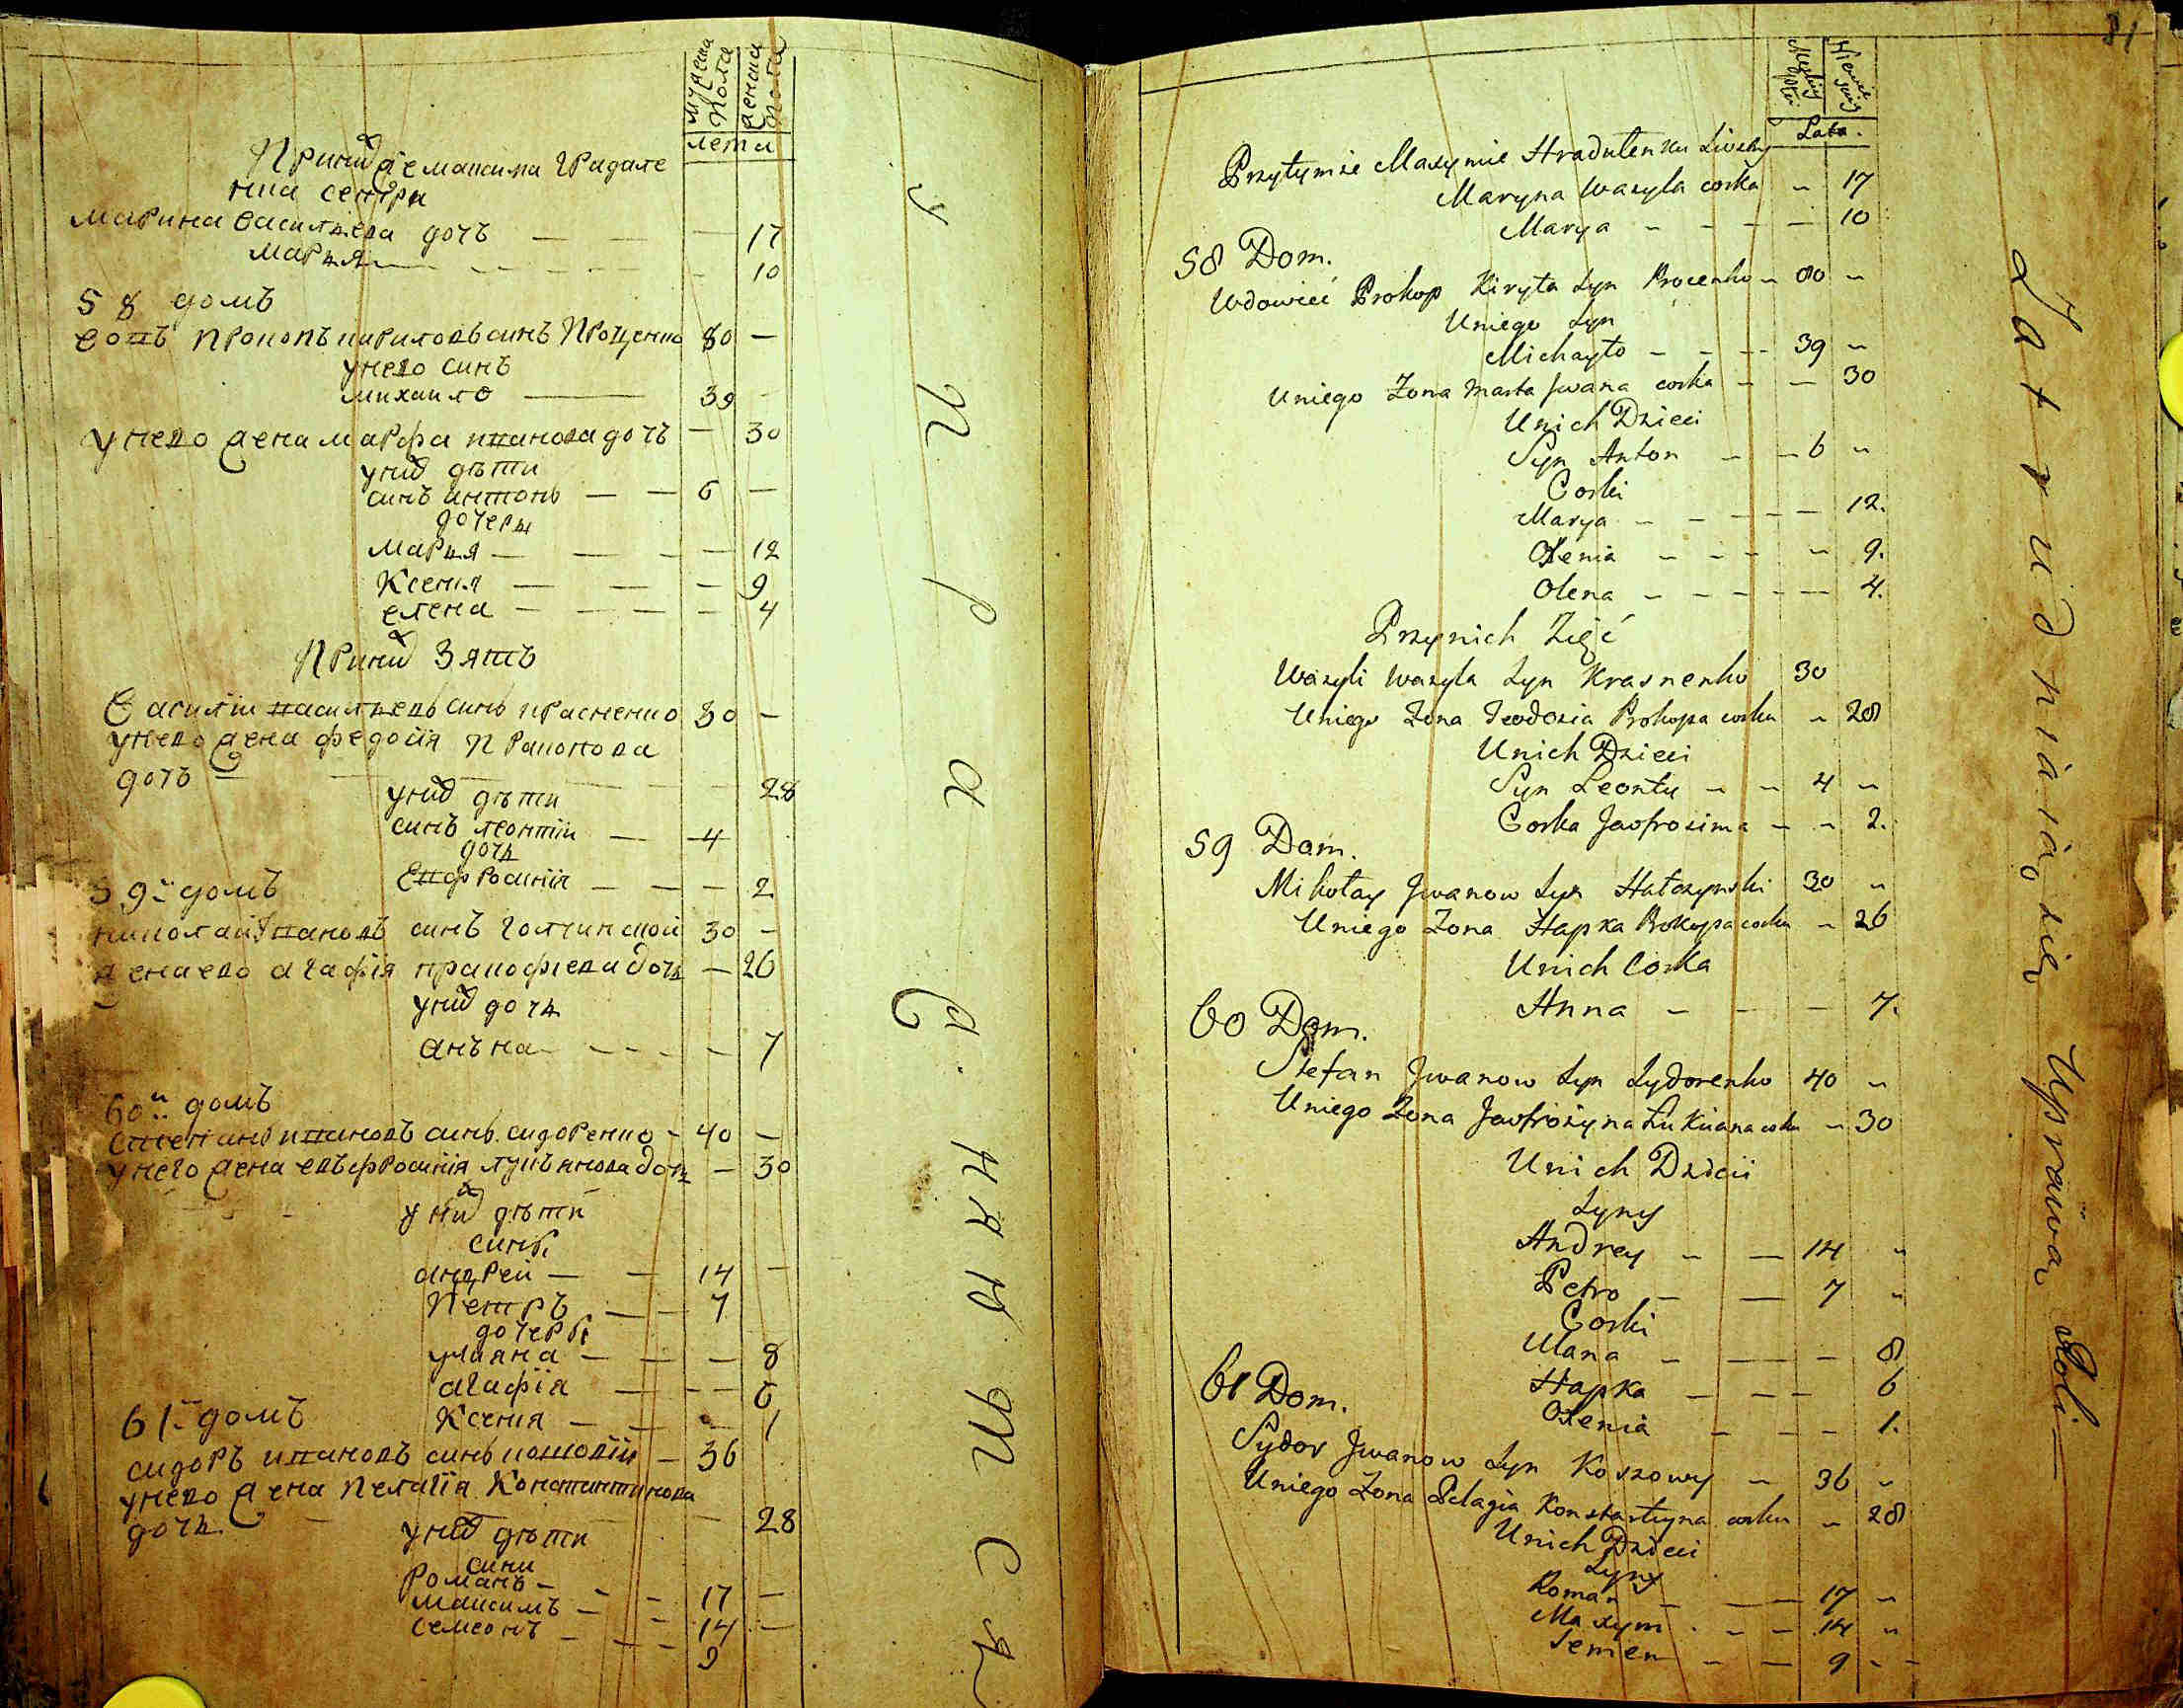 мужеска пола
женска пола
лета
При них же Максима Градуле
нка сестри
Марина Василиева дочъ — — — 17
Марья — — — — — 10
58 домъ
вдовъ Прокопъ Кириловъ синъ Проценко 80 —
у него синъ
Михаило — 39 —
у него жена Марфа Иванова дочъ — 30
у них дѣти
синъ Антонъ — — 6 —
дочери
Марья — — — — 12
Ксения — — — 9
Елена — — — — 4
При них зять
Василій Василиевъ синъ Красненко 30 —
у него жена Федосія Пракопова
дочъ — — — — 28
у них дѣти
синъ Леонтіи — 4
дочь
Евфросинія — — — 2
59й домъ
Николаи Ивановъ синъ Голчинской 30 —
жена ево Агафія Пракофиева дочь — 26
у них дочь
Анъна — — — — 7
60й домъ
Степанъ Ивановъ синъ Сидоренко — 40 —
у него жена Евъфросинія Лукъянова дочь — 30
у них дѣти
сины
Андреи — — 14 —
Петръ — — 7
дочеры
Улияна — — — 8
Агафія — — — 6
Ксения — — — 1
61й домъ
Сидоръ Ивановъ синъ Кошовіи — 36
у него жена Пелагія Константинова
дочь — — 28
у них дѣти
сини
Романъ — — — 17 —
Максимъ — — 14 —
Семеонъ — — — 9
упражняются
81
Męskiej płci
Żenskiej
Lata.
Przytymże Maxymie Hradulenku Siostry
Maryna Wasyla corka — 17
Marya — — — — 10
58 Dom.
Wdowieć Prokop Kiryła Syn Procenko — 80 —
Uniego Syn
Michayło — — — 39 —
Uniego Żona Marta Jwana corka — — 30
Unich Dzieci
Syn Anton — — 6 —
Corki
Marya — — — — — 12.
Oxenia — — — — 9.
Olena — — — — — 4.
Przynich Zięć
Wasyli Wasyla Syn Krasnenko 30
Uniego Żona Teodozia Prokopa corka — 28
Unich Dzieci
Syn Leonty — — 4 —
Corka Jawfrosima — — 2.
59 Dom.
Mikołay Jwanow Syn Hałczynski 30 —
Uniego Żona Hapka Prokopa corka — 26
Unich Corka
Anna — — — 7.
60 Dom.
Stefan Jwanow Syn Sydorenko 40 —
Uniego Żona Jawfrożyna Łukiiana corka — 30
Unich Dzieci
Syny
Andrey — — 14 —
Petro — — 7 —
Corki
Ulana — — — 8
Hapka — — — 6
Oxenia — — — 1.
61 Dom.
Sydor Jwanow Syn Koszowy — 36 —
Uniego Żona Pelagia Konstantyna corka — 28
Unich Dzieci
Syny
Roman — — — 17 —
Maxym — — — 14 —
Semen — — 9 — —
Zatrudniaią się Uprawą Roli